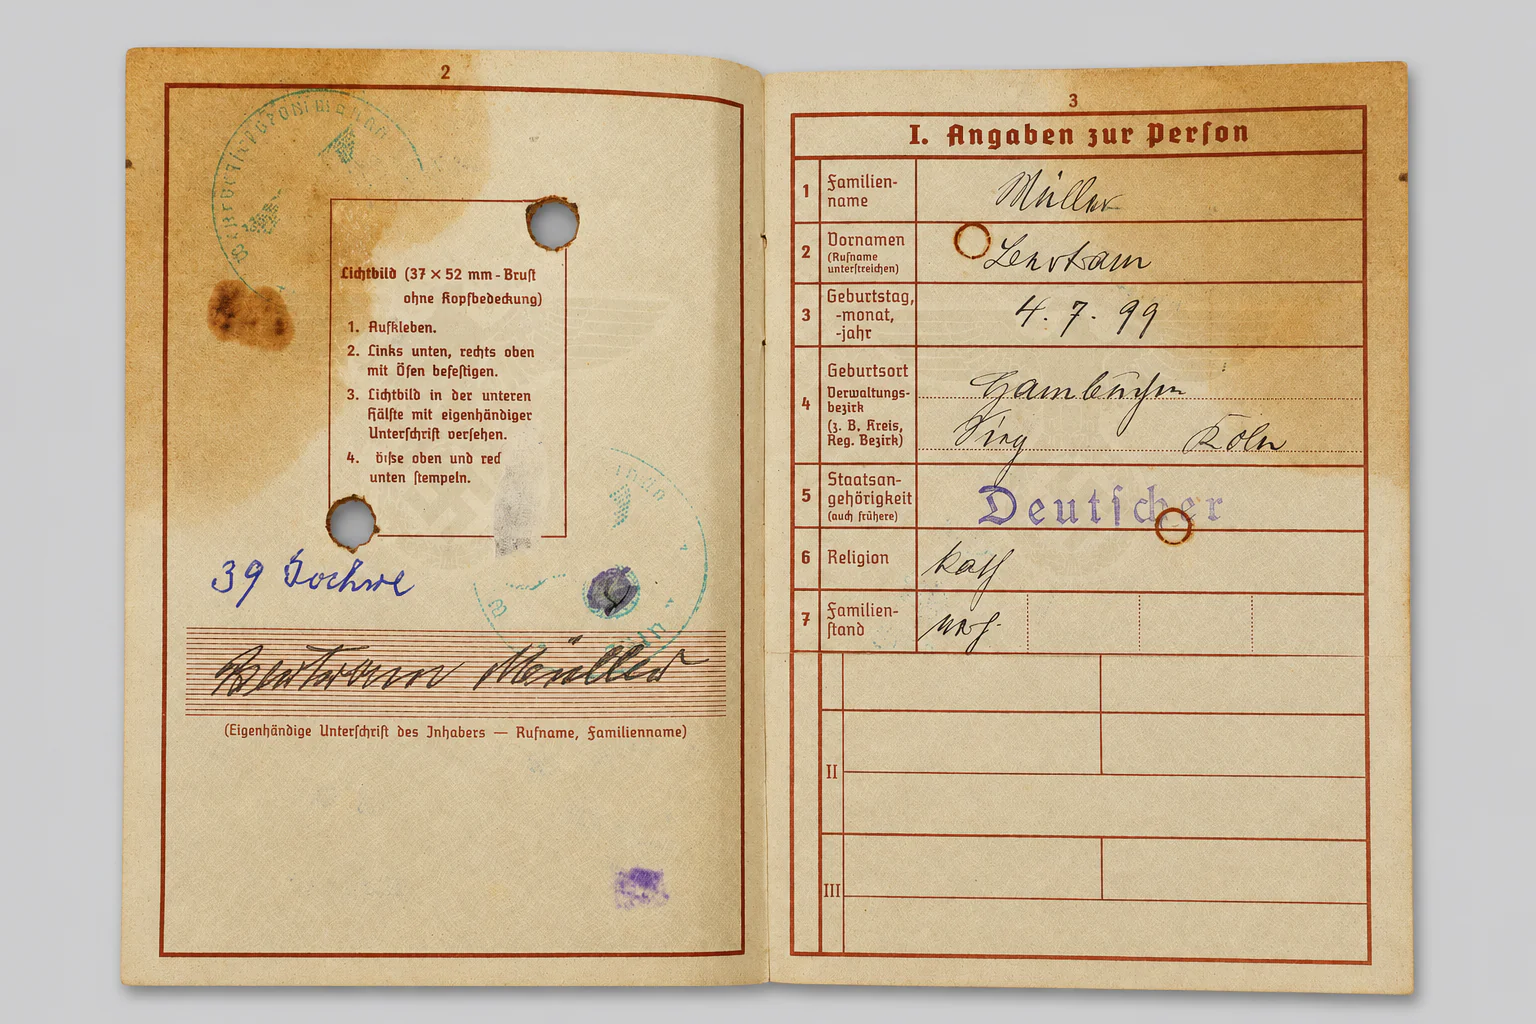 2
Lichtbild (37 × 52 mm - Brust
ohne Kopfbedeckung)
1. Aufkleben.
2. Links unten, rechts oben
mit Ösen befestigen.
3. Lichtbild in der unteren
Hälfte mit eigenhändiger
Unterschrift versehen.
4. öiſse oben und red
unten stempeln.
39
Bertram Müller
(Eigenhändige Unterschrift des Inhabers — Rufname, Familienname)
3
I. Angaben zur Person
1 Familien-
name
Müller
2 Vornamen
(Rufname
unterstreichen)
3 Geburtstag,
-monat,
-jahr
4. 7. 99
4 Geburtsort
Verwaltungs-
bezirk
(z. B. Kreis,
Reg. Bezirk)
Sieg Köln
5 Staatsan-
gehörigkeit
(auch frühere)
Deutscher
6 Religion
kath
7 Familien-
stand
II
III